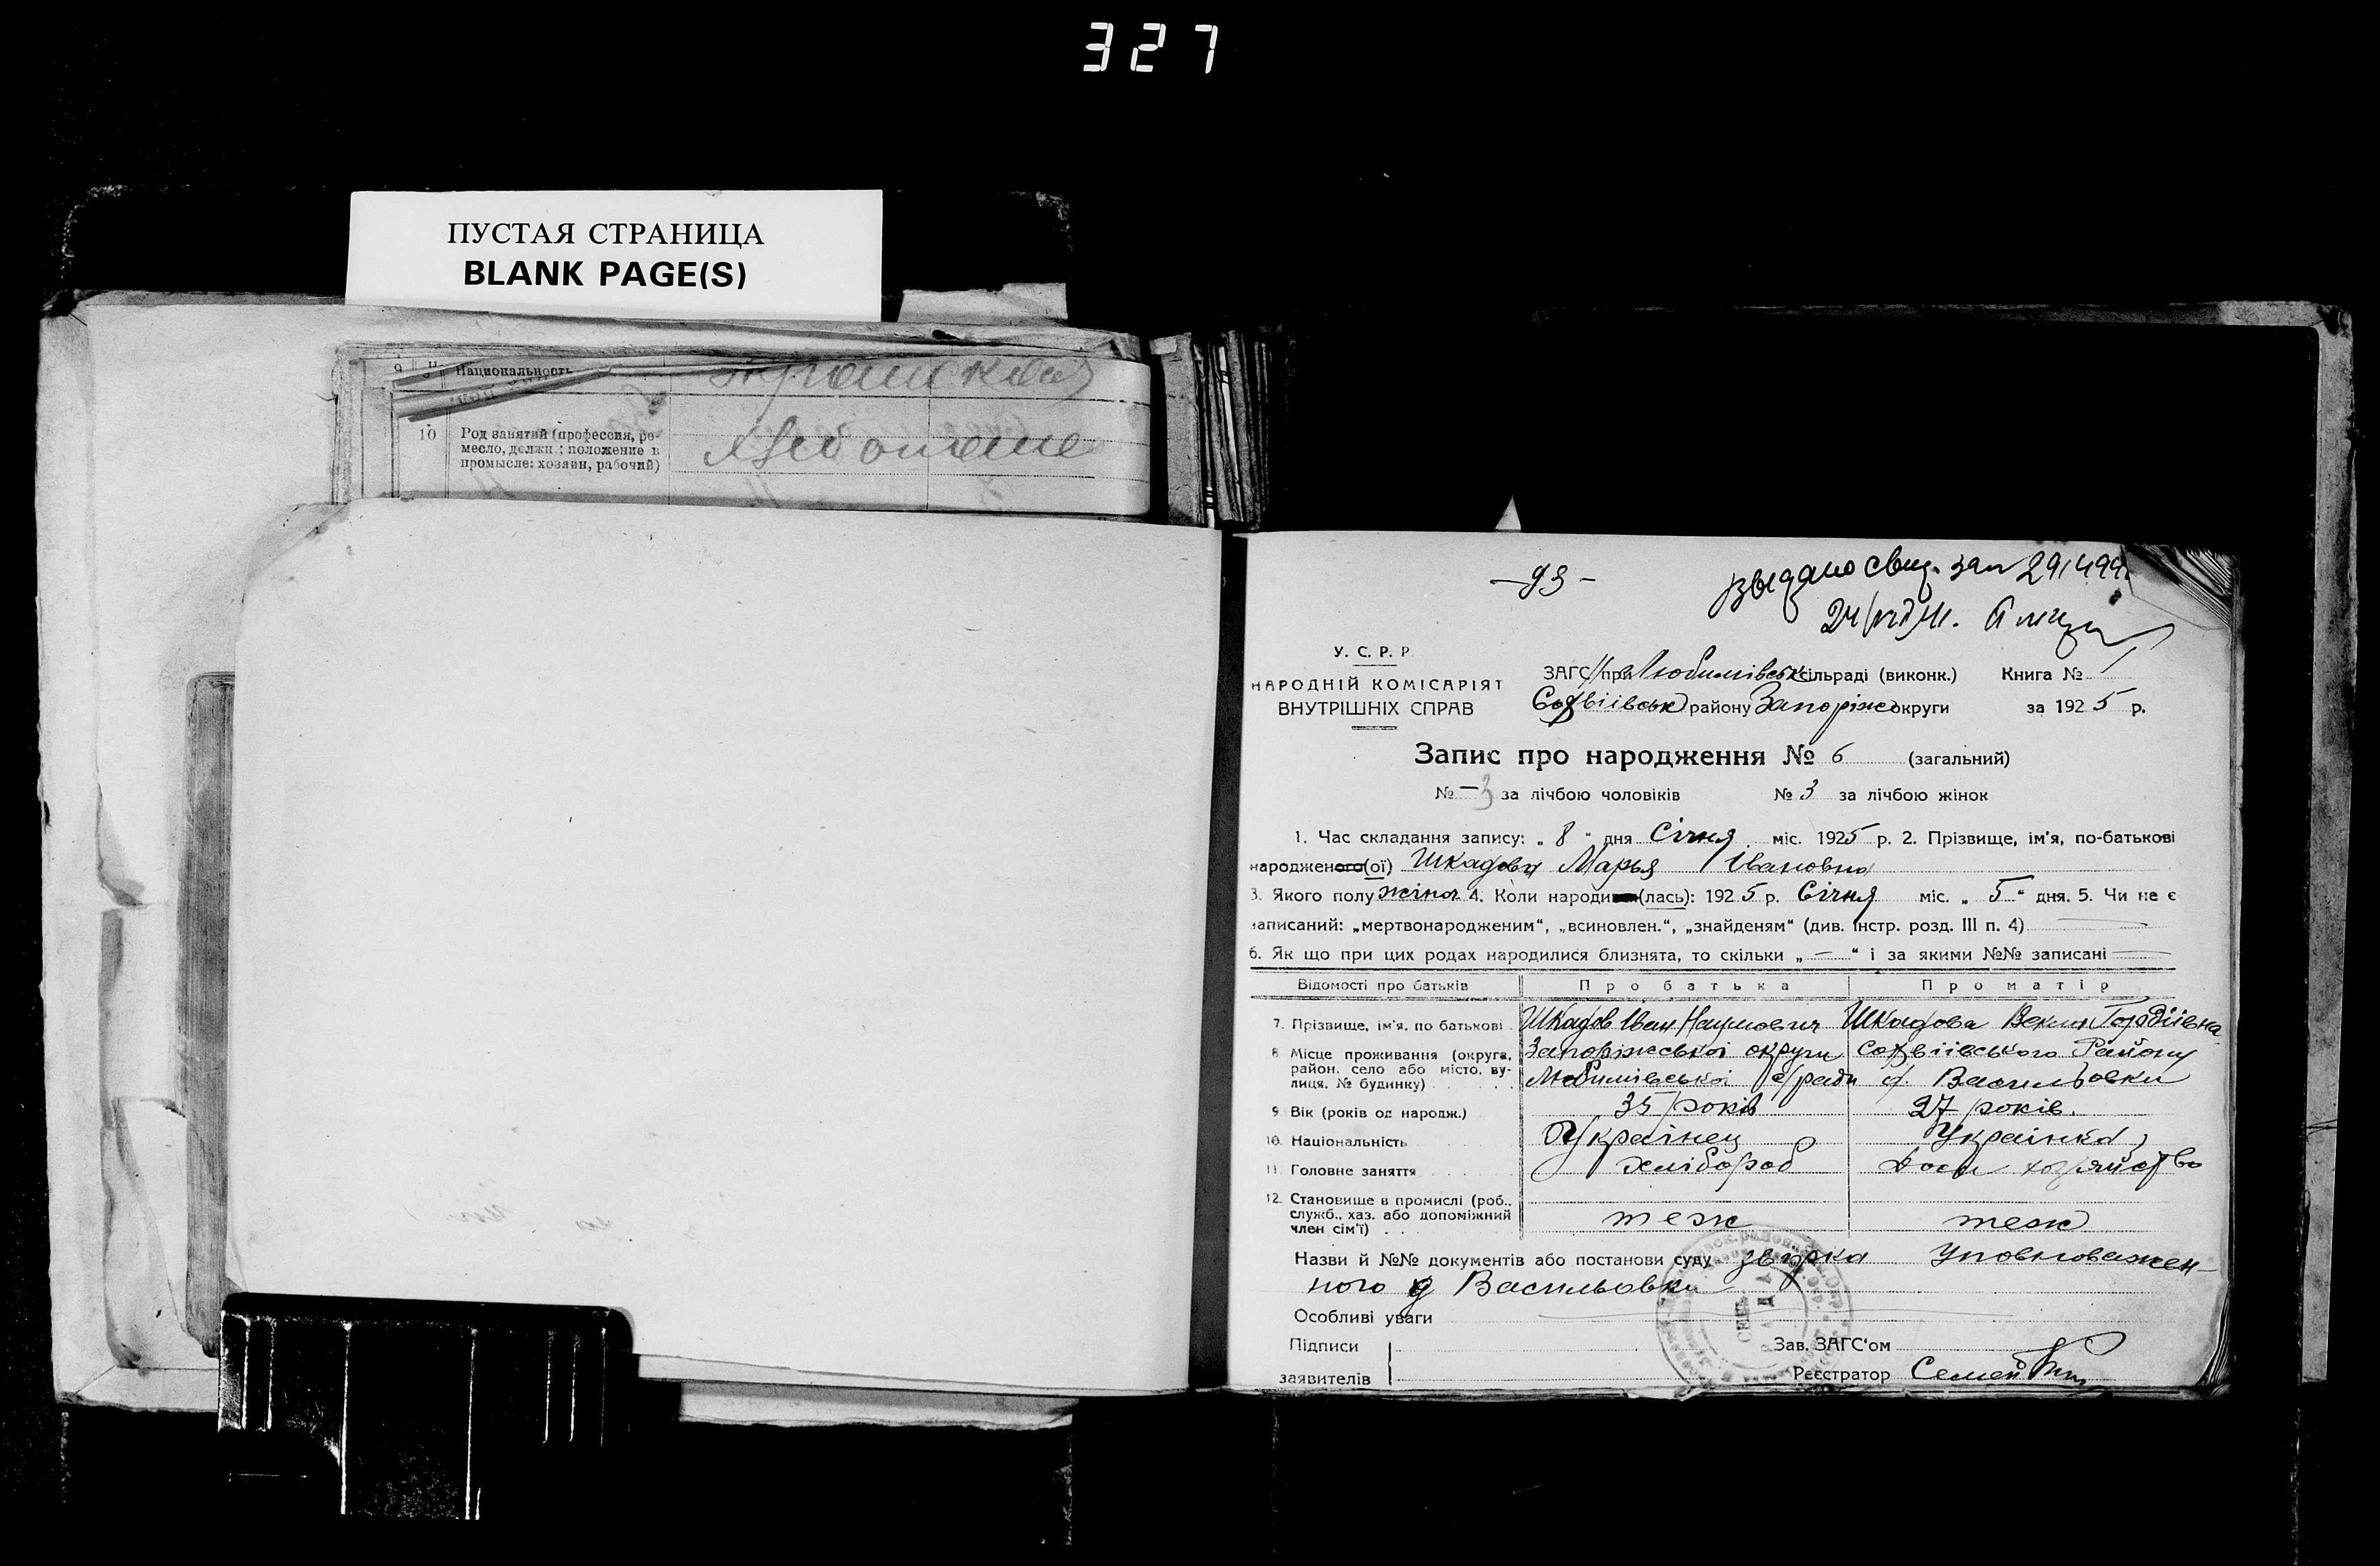 327
ПУСТАЯ СТРАНИЦА
BLANK PAGE(S)
Национальность
10 Род занятий (профессия, ре-
месло, должн.; положение в
промысле: хозяин, рабочий)
—93—
выдано Свид.
У. С. Р. Р.
НАРОДНІЙ КОМІСАРІЯТ
ВНУТРІШНІХ СПРАВ
ЗАГС при Любимівськ сільраді (виконк.) Книга № 1
Софіівськ району Запоріж округи за 1925 р.
Запис про народження № 6 (загальний)
№ — за лічбою чоловіків № 3 за лічбою жінок
1. Час складання запису: „8" дня Січня міс. 1925 р. 2. Прізвище, ім'я, по-батькові
народженого(ої) Шкадова Марья Івановна
3. Якого полу жіноч 4. Коли народи (лась): 1925 р. Січня міс. „5" дня. 5. Чи не є
записаний: „мертвонародженим", „всиновлен.", „знайденям" (див. інстр. розд. III п. 4)
6. Як що при цих родах народилися близнята, то скільки „—" і за якими №№ записані —
Відомості про батьків Про батька Про матір
7. Прізвище, ім'я, по батькові Шкадов Іван Наумович Шкадова Векла Гордіівна
8 Місце проживання (округа, район, село або місто, ву-
лиця, № будинку) Запоріжськоі округи Софіівського Району
Любимівськоі с/ради с. Васильовки
9 Вік (років од народж.) 35 років 27 років.
10. Національність Украінец Украінка
11. Головне заняття хлібороб Дом хозяйство
12. Становище в промислі (роб.,
служб., хаз. або допоміжний
член сім'ї) теж теж
Назви й №№ документів або постанови суду звідка Уповноважен-
ного с Васильовки
Особливі уваги
Підписи Зав. ЗАГС'ом
заявителів Реєстратор